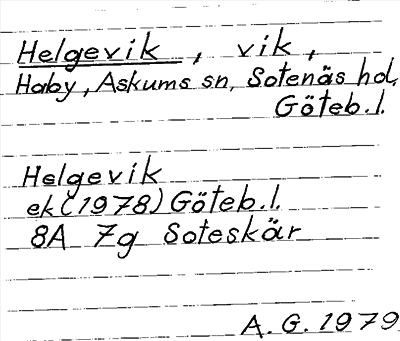 Helgevik, vik,
Haby, Askums sn, Sotenäs hd,
Göteb.l.
Helgevik
ek (1978) Göteb.l.
8A 7g Soteskär
A.G. 1979